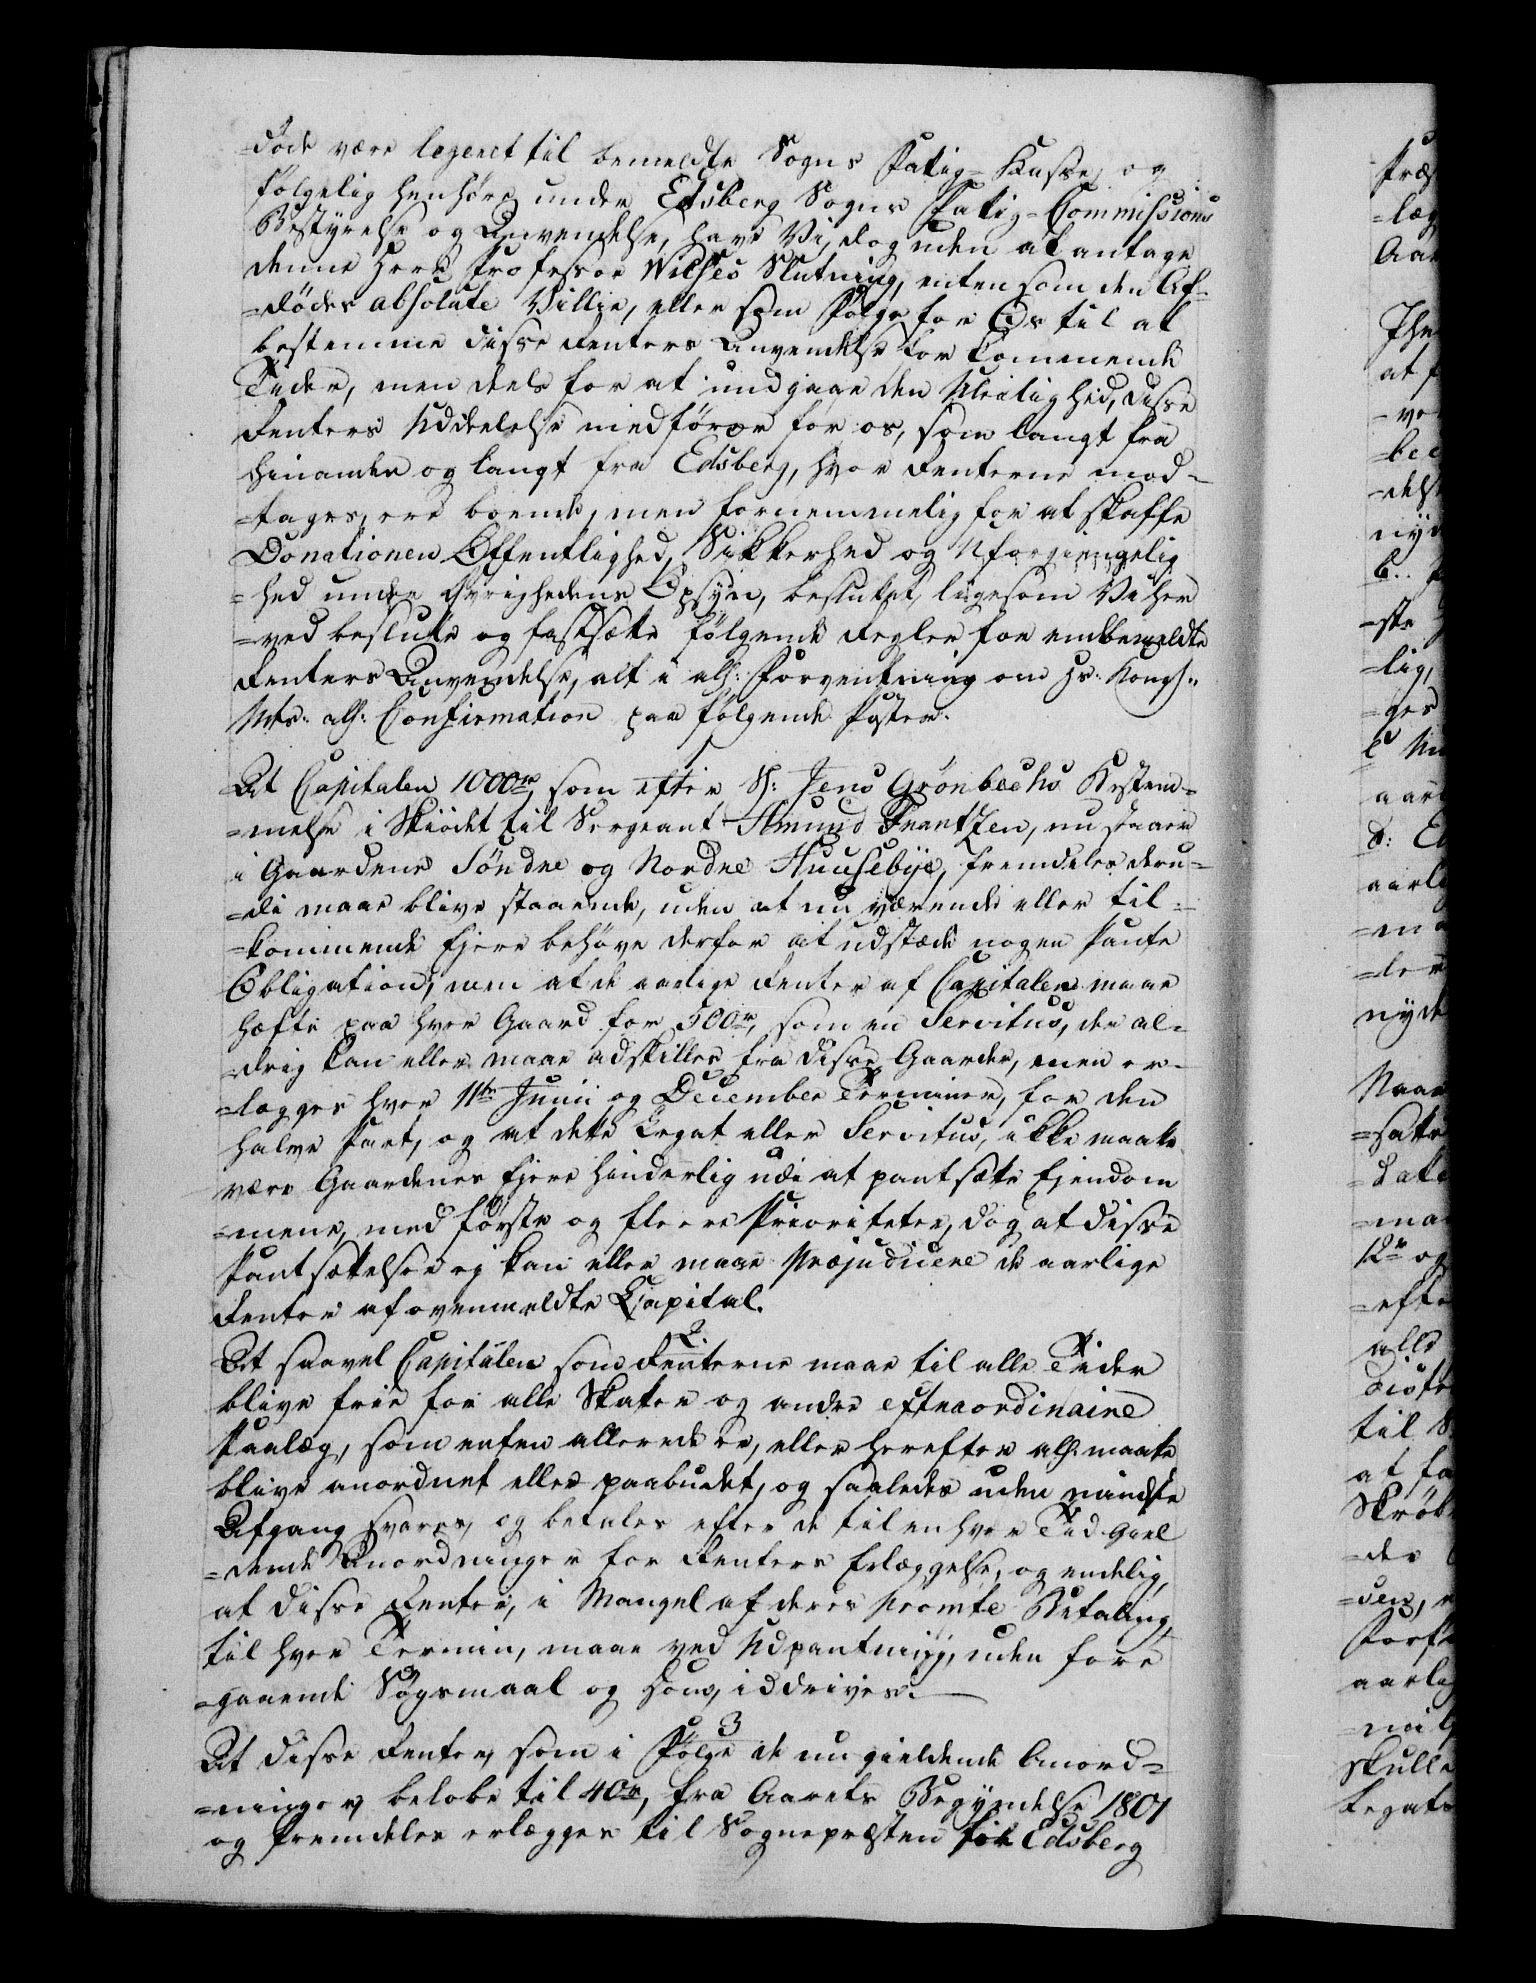 =døde være legeret til bemeldte Sogns Fatig-Kasse, og
følgelig henhøre under Edsberg Sogns Fatig-Commissions
Bestyrelse og Anvendelse, have Vi, dog uden at antage
denne Herr Professor Wilses Slutning, enten som den Af-
=dødes absolute Villie, eller som Følge for Os til at
bestemme disse Renters Anvendelse for kommende
Tider, men deels for at undgaae den Vleilighed, disse
Renters Uddeelelse medfører for os, som langt fra
hinanden og langt fra Edsberg, hvor Renterne mod-
=tages, ere boende, men fornemmelig for at skaffe
Donationen Offentlighed, Sikkerhed og Uforgiengelig
=hed under Øvrighedens Opsyn, besluttet, ligesom Vi her
=ved beslutte og fastsætte følgende Regler for embemeldte
Renters Anvendelse, alt i alh: Forventning om Hs: Kongl:
Mts: alh: Confirmation paa følgende Poster.
1
At Capitalen 1000rd, som efter S: Jens Grønbechs Bestem-
=melse i Skiødet til Sergeant Amund Frantzen, nu staaer
i Gaardene Søndre og Nordre Huusebye, fremdeles deru-
=di maae blive staaende, uden at nu værende eller til-
=kommende Ejere behøve derfor at udstæde nogen Pante
Obligation, men at de aarlige Renter af Capitalen maae
hæfte paa hver Gaard for 500rd, som en Servitus, der al-
=drig kan eller maae adskilles fra disse Gaarder, men er-
=lægges hver 11te Junii og December Terminer, for den
halve Part, og at dette Legat eller Servitus, ikke maatte
være Gaardenes Ejere hinderlig udi at pantsætte Ejendom
=mene, med første og fleere Prioriteter, dog at disse
Pantsættelser ej kan eller maae præjudicere de aarlige
Renter af ovenmeldte Capital.
2
At saavel Capitalen som Renterne maae til alle Tider
blive frie for alle Skatter og andre extraordinaire
Paalæg, som enten allerede er, eller herefter alh: maatte
blive anordnet eller paabudet, og saaledes uden mindste
Afgang svares, og betales efter de til en hver Tid giel
=dende Anordninger for Renters Erlæggelse, og endelig,
at disse Renter, i Mangel af deres promte Betaling,
til hver Termin, maae ved Udpantning, uden fore
=gaaende Søgsmaal og Dom, inddrives.
3
At disse Renter, som i Følge de nu gieldende Anord-
=ninger, beløbe til 40rd, fra Aarets Begyndelse 1801
og fremdeles erlægges til Sognepræsten til Edsberg